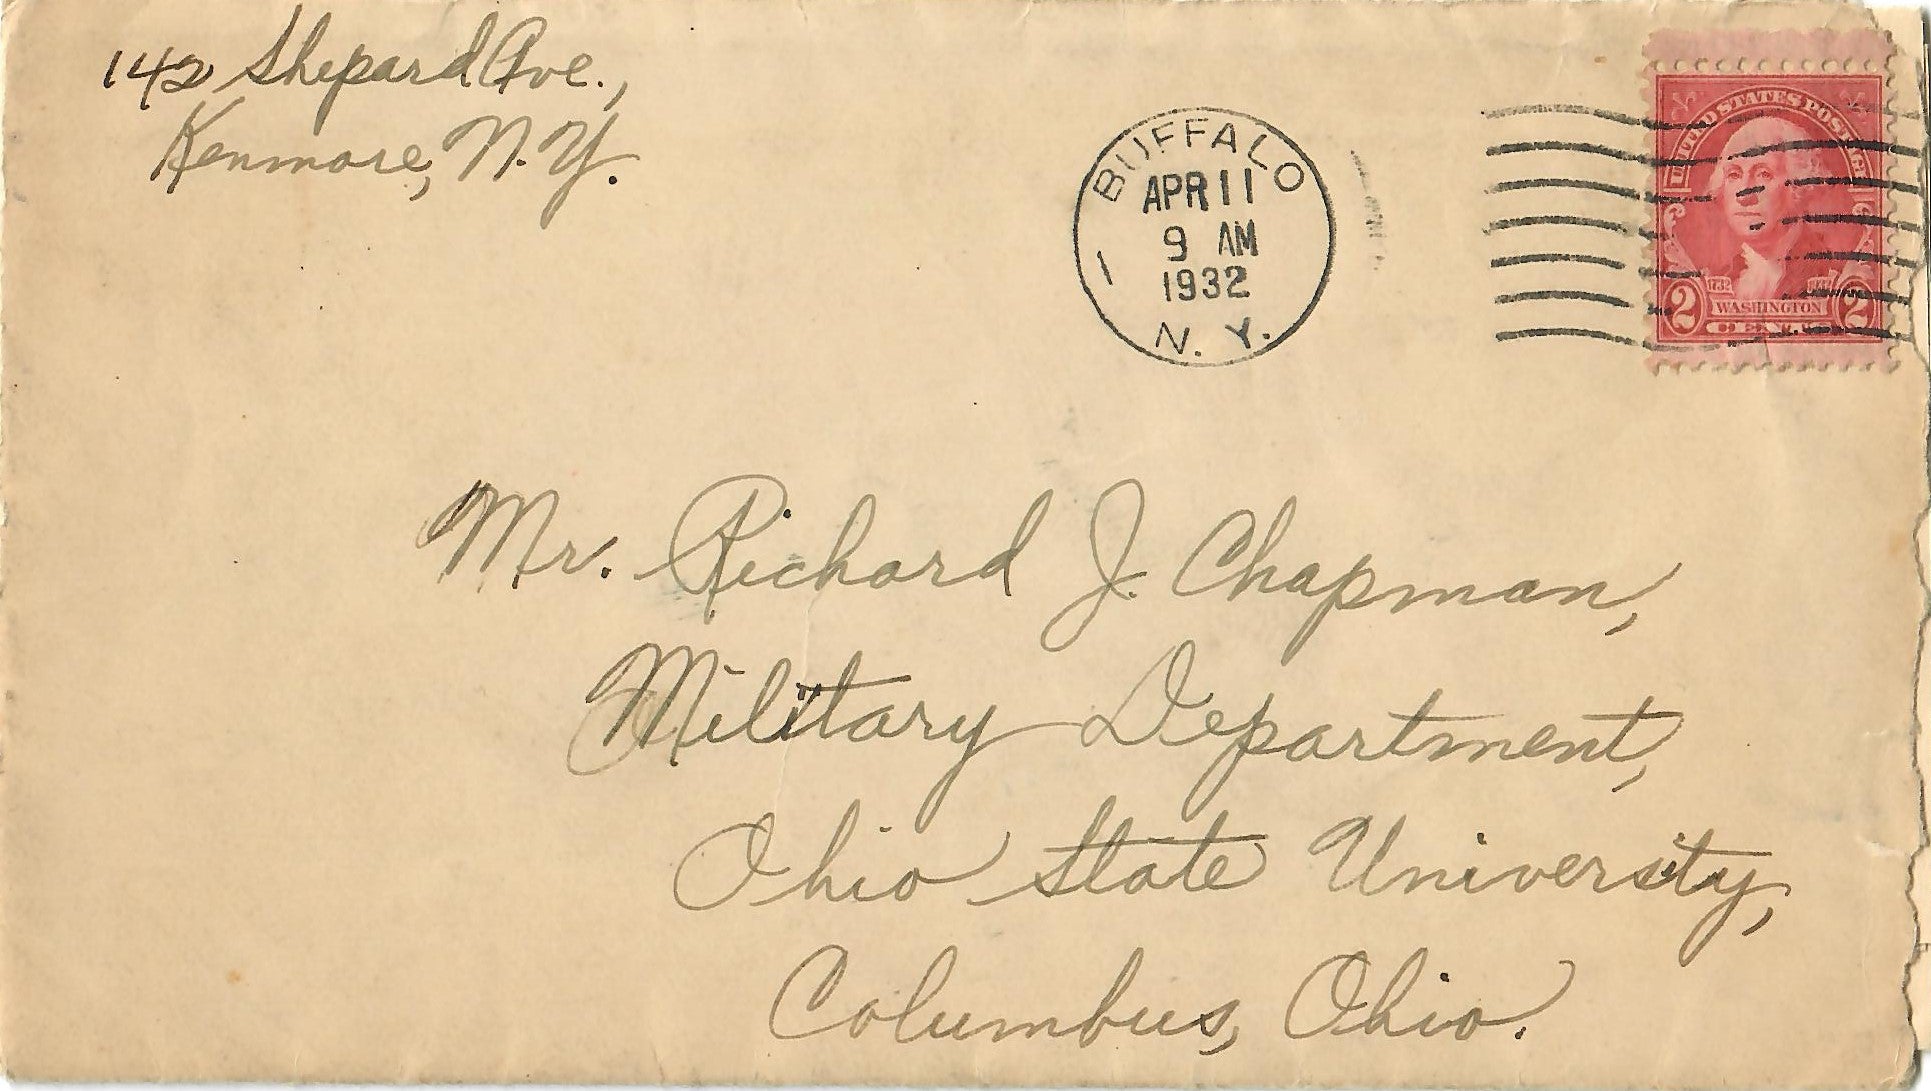 142 Shepard Ave.,
Kenmore, N.Y.
BUFFALO
APR 11
9 AM
1932
1
N. Y.
UNITED STATES POSTAGE
1732
WASHINGTON
2 CENTS 2
Mr. Richard J. Chapman,
Military Department,
Ohio State University,
Columbus, Ohio.